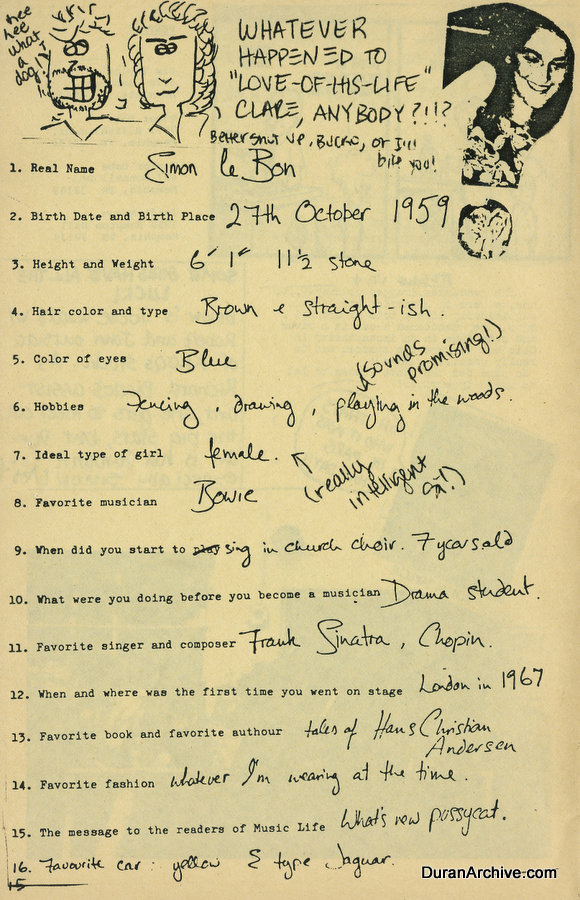 hee
hee
what
a
dog!!
WHATEVER
HAPPENED TO
"LOVE-OF-HIS-LIFE"
CLARE, ANYBODY?!!?
Better shut up, Bucko, or I'll
bite you!
1. Real Name Simon le Bon
2. Birth Date and Birth Place 27th October 1959
3. Height and Weight 6' 1" 11½ stone
4. Hair color and type Brown & straight-ish.
5. Color of eyes Blue
(sounds
promising!)
6. Hobbies Fencing, drawing, playing in the woods.
7. Ideal type of girl female.
(really
intelligent
!)
8. Favorite musician Bowie
9. When did you start to play sing in church choir. 7 years old
10. What were you doing before you become a musician Drama student.
11. Favorite singer and composer Frank Sinatra, Chopin.
12. When and where was the first time you went on stage London in 1967
13. Favorite book and favorite authour tales of Hans Christian
Andersen
14. Favorite fashion whatever I'm wearing at the time.
15. The message to the readers of Music Life What's new pussycat.
16. Favourite car: yellow E type Jaguar.
15
DuranArchive.com